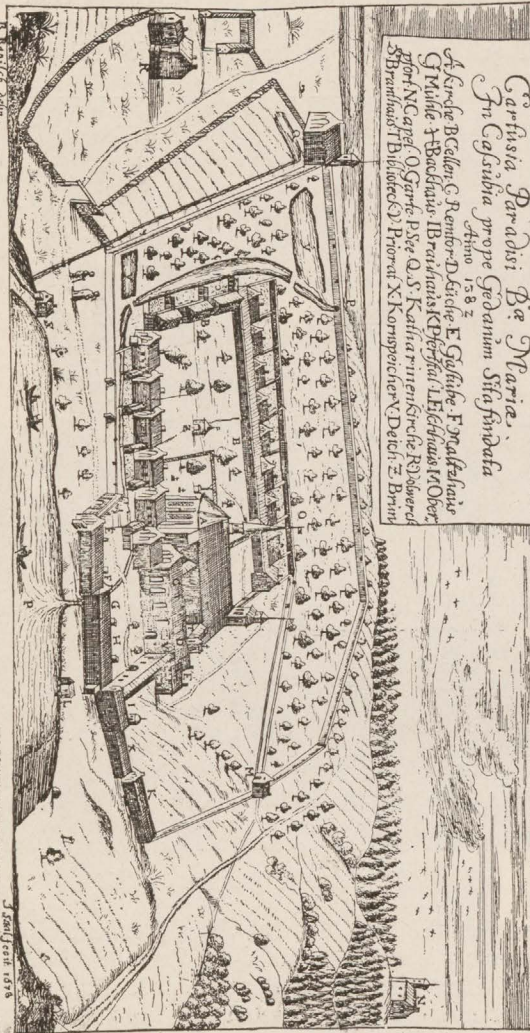 Cartusia Paradisi Bæ Mariæ
In Casubia prope Gedanum Sita fundata
Anno 1382
A. Kirche B. Cellen. C Remter. D. Küche. E Gastube. F. Maltzhaus
G Mühle. H Backhaus. I Brauhaus. K Pferstal L.Eichhaus. M Ober
pfort. N Capel. O Garte. P. See. Q. S. Katharinenkirche. R
S Brunhaus T Biblioteck V. Priorat X Kornspeicher Y. Deich Z. Brun
fecit 1678